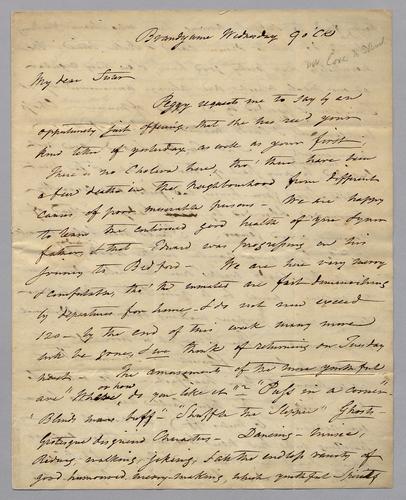 Brandywine Wednesday 9 o'Ck
My dear Sister
Peggy requests me to say by an
opportunity just offering, that she has recd your
kind letter of yesterday, as well as your first,
There is no Cholera here, tho' there have been
a few deaths in the Neighbourhood from different
causes of poor miserable persons - We are happy
to learn the continued good health of your
father, & that was progressing on his
journey to Bedford - We are here very merry
& comfortable, tho' the inmates are fast diminishing
by departures for home, & do not now exceed
120 - by the end of this week many more
will be gone, & we think of returning on Tuesday
next. The amusements of the more youthful
are "Where, or how do you like it" - "Puss in a corner"
Blind mans buff "Shuffle the Slipper" Ghosts -
Grotesque disguised Characters - Dancing - music,
Riding walking, joking, & all the endless variety of
good humoured merry-making, which youthful Spirits